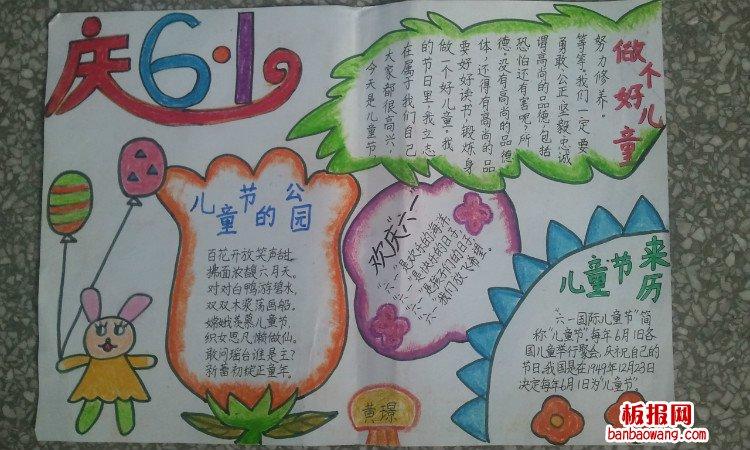 庆6·1
做个好儿童
今天是儿童节,
大家都很高兴,
在属于我们自己
的节日里,我立志
做一个好儿童。我
要好好读书,锻炼身
体,还得有高尚的品
德。没有高尚的品德
恐怕还有害呢?所
谓高尚的品德,包括
勇敢、公正、坚毅、忠诚
等等,我们一定要
努力修养。
儿童节的公园
百花开放笑声甜,
拂面浓馥六月天。
对对白鸭游碧水,
双双木桨荡画船。
嫦娥羡慕儿童节,
织女思凡懒做仙。
敢问瑶台谁是主?
新蕾初绽正童年。
欢庆“六一”
“六一”是欢乐的海洋,
“六一”是快乐的日子,
“六一”是孩子们的日子,
“六一”我们放飞希望。
儿童节来历
“六一国际儿童节”简
称“儿童节”。每年6月1日各
国儿童举行聚会,庆祝自己的
节日。我国是在1949年12月23日
决定每年6月1日为“儿童节”
黄璟
板报网
banbaowang.com